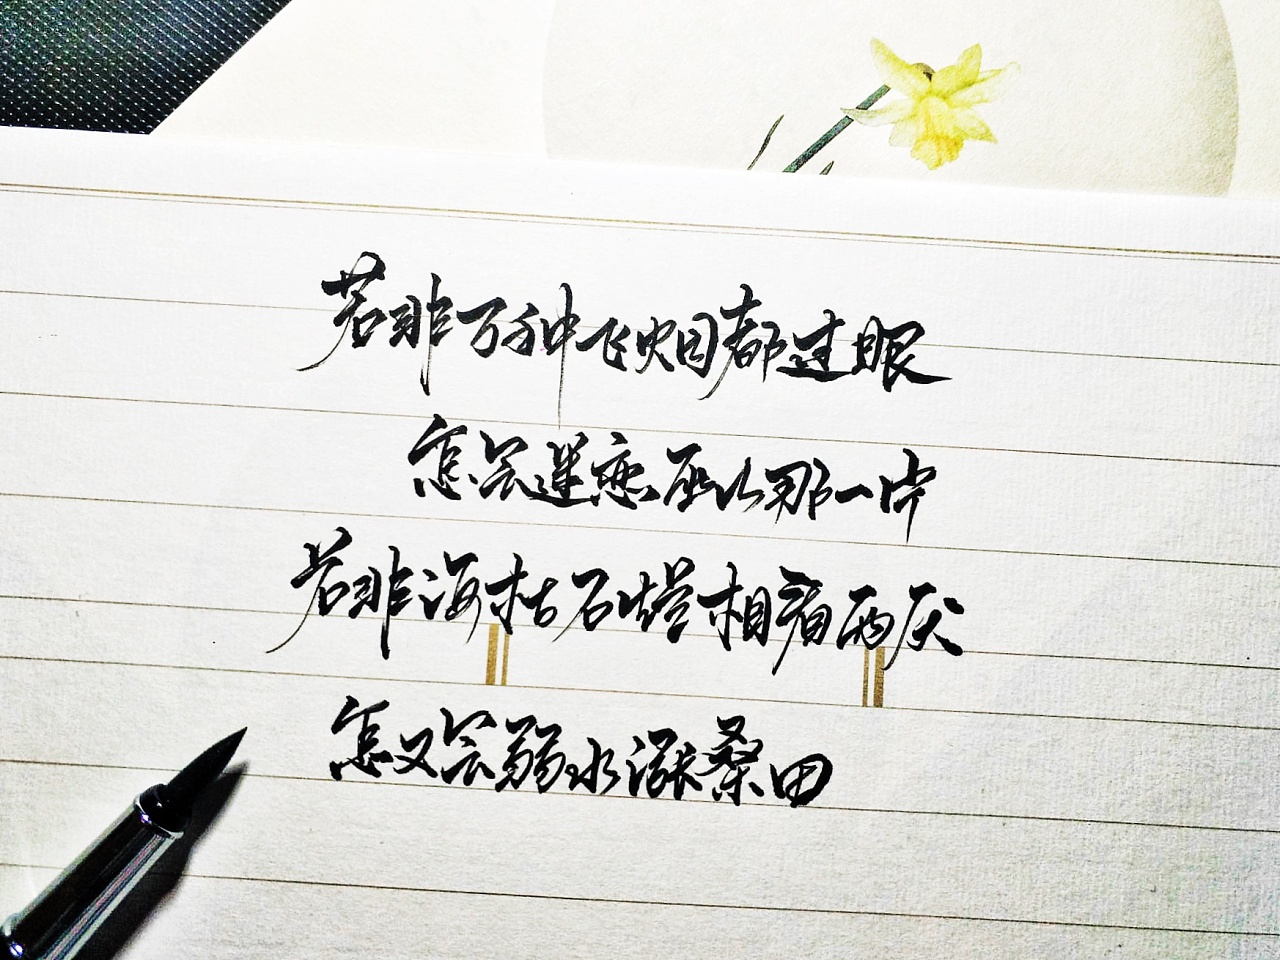 若非万种飞烟都过眼
怎会迷恋巫山那一片
若非海枯石烂相看两厌
怎又会弱水涨桑田